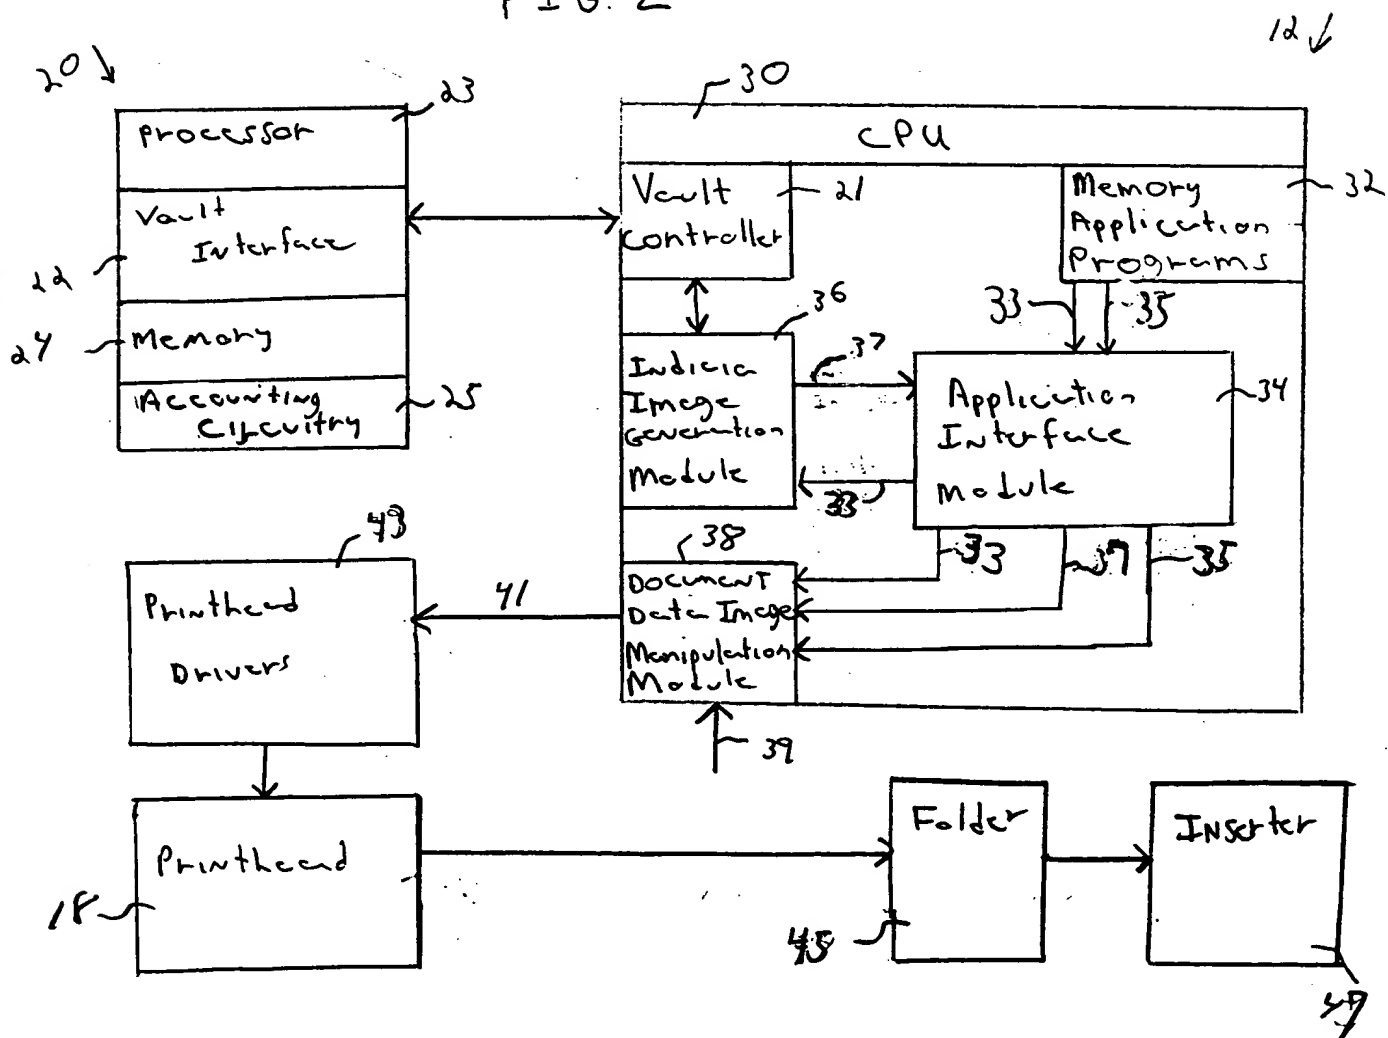 FIG. 2
12
20
23
Processor
Vault
Interface
22
24
Memory
Accounting
Circuitry
25
30
CPU
Vault
Controller
21
Memory
Application
Programs
32
33
35
36
Indicia
Image
Generation
Module
37
33
Application
Interface
Module
34
33
37
35
38
Document
Data Image
Manipulation
Module
39
41
43
Printhead
Drivers
Printhead
18
Folder
45
Inserter